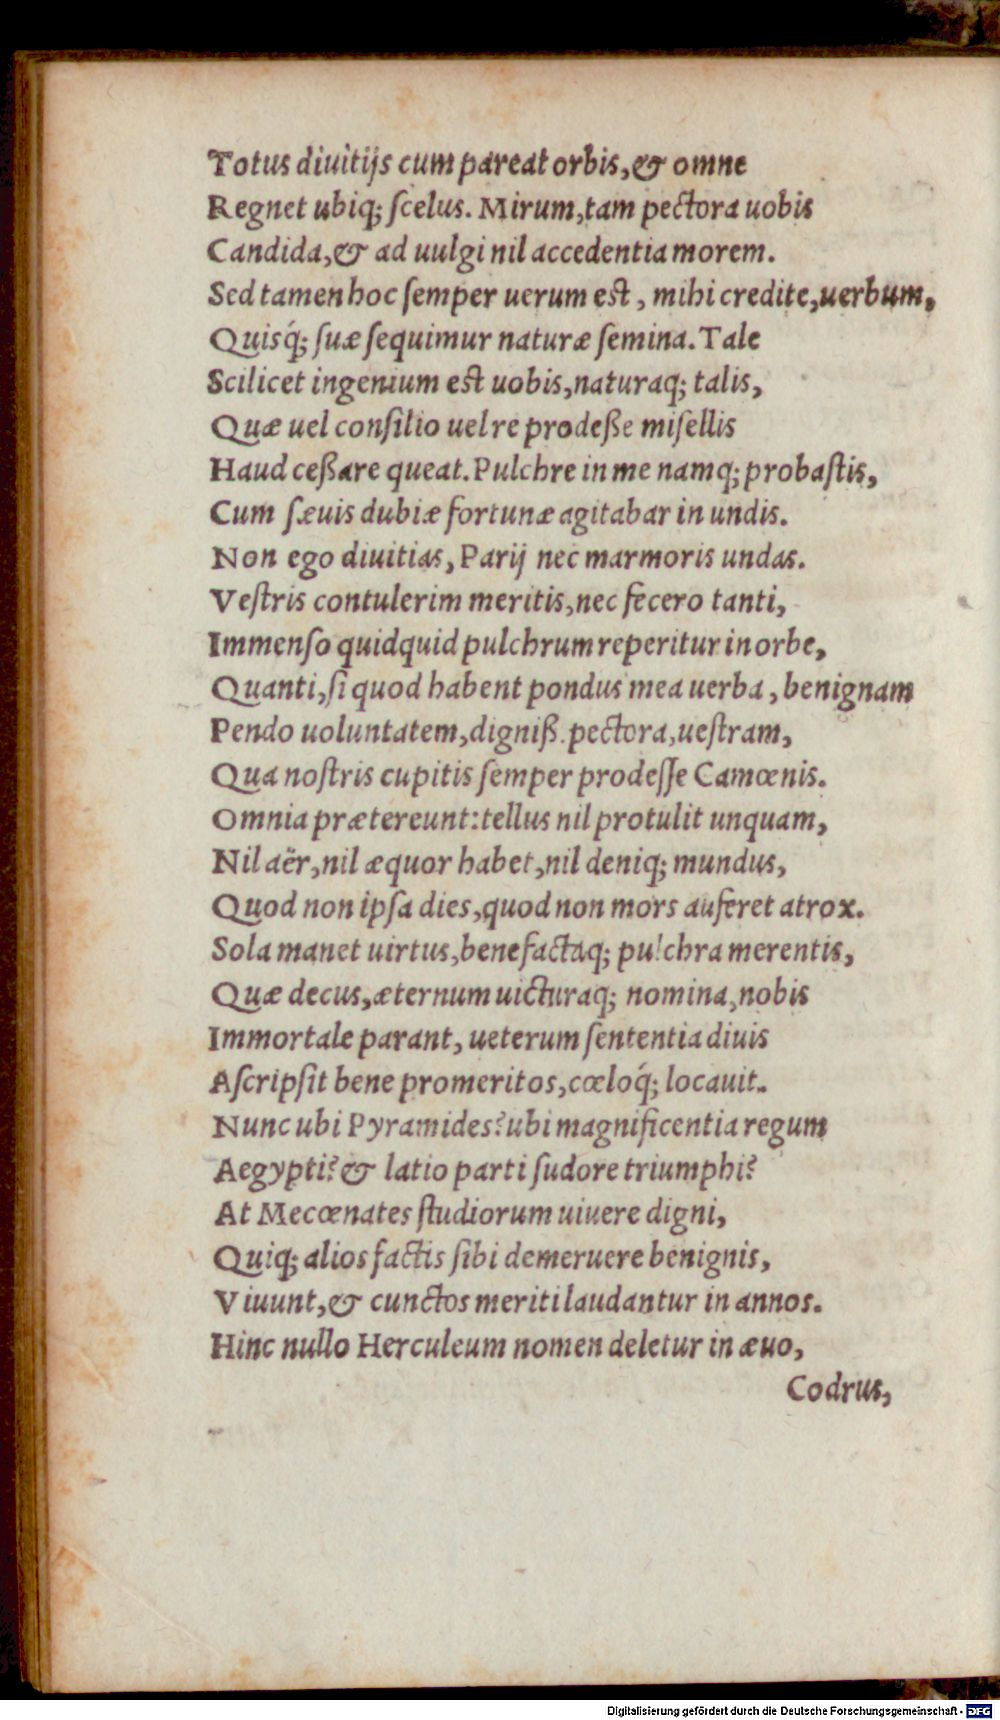 Totus diuitijs cum pareat orbis,& omne
Regnet ubiq; ſcelus. Mirum,tam pectora uobis
Candida,& ad uulgi nil accedentia morem.
Sed tamen hoc ſemper uerum eſt, mihi credite,uerbum,
Quisq́; ſuæ ſequimur naturæ ſemina. Tale
Scilicet ingenium eſt uobis,naturaq; talis,
Quæ uel conſilio uel re prodeße miſellis
Haud ceßare queat. Pulchre in me namq; probaſtis,
Cum ſæuis dubiæ fortunæ agitabar in undis.
Non ego diuitias, Parij nec marmoris undas.
Veſtris contulerim meritis,nec fecero tanti,
Immenſo quidquid pulchrum reperitur in orbe,
Quanti,ſi quod habent pondus mea uerba, benignam
Pendo uoluntatem,digniß. pectora,ueſtram,
Qua noſtris cupitis ſemper prodeſſe Camœnis.
Omnia prætereunt: tellus nil protulit unquam,
Nil aër,nil æquor habet,nil deniq; mundus,
Quod non ipſa dies,quod non mors auferet atrox.
Sola manet uirtus,benefactaq; pulchra merentis,
Quæ decus,æternum uicturaq; nomina,nobis
Immortale parant, ueterum ſententia diuis
Aſcripſit bene promeritos,cœloq́; locauit.
Nunc ubi Pyramides? ubi magnificentia regum
Aegypti? & latio parti ſudore triumphi?
At Mecœnates ſtudiorum uiuere digni,
Quiq; alios factis ſibi demeruere benignis,
Viuunt,& cunctos meriti laudantur in annos.
Hinc nullo Herculeum nomen deletur in æuo,
Codrus,
Digitalisierung gefördert durch die Deutsche Forschungsgemeinschaft - DFG